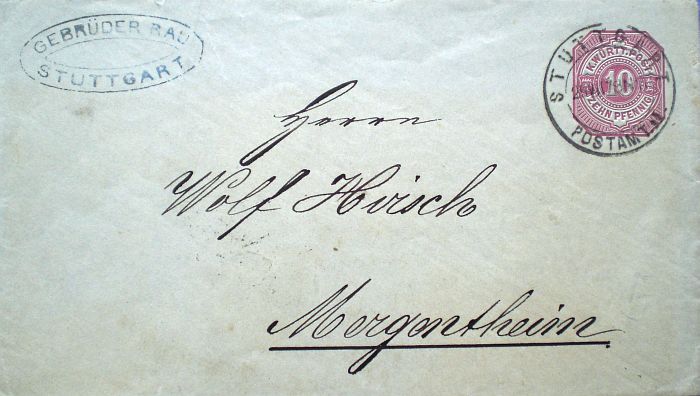 GEBRÜDER RAU
STUTTGART
STUTTGART
POSTAMT
K. WÜRTT. POST
10
ZEHN PFENNIG
Herrn
Wolf Hirsch
Mergentheim